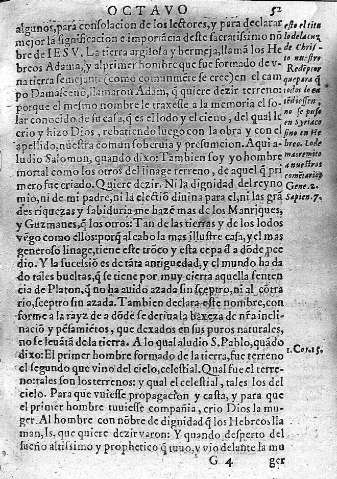 OCTAVO 52
algunos, para consolacion de los lectores, y para declarar
mejor la significacion e importãcia deste sacratissimo nõ
bre de IESV. La tierra argilosa y bermeja, llamã los He
breos Adama, y al primer hombre que fue formado de v-
na tierra semejante (como comunmẽte se cree) en el cam
po Damasceno, llamarou Adam, q̃ quiere dezir terreno:
porque el mesmo nombre le traxesse a la memoria el so-
lar conocido de su casa, q̃ es el lodo y el cieno, del qual le
crio y hizo Dios, rebatiendo luego con la obra y con el
apellido, nuestra comun soberuia y presumcion. Aqui a-
ludio Salomon, quando dixo: Tambien soy yo hombre
mortal como los otros del linage terreno, de aquel q̃ pri
mero fue criado. Quiere dezir. Ni la dignidad del reyno
mio, ni de mi padre, ni la electiõ diuina para el, ni las grã
des riquezas y sabiduria me hazẽ mas de los Manriques,
y Guzmanes, q̃ los otros: Tan de las tierras y de los lodos
vẽgo como ellos: porq̃ al cabo la mas illustre casa, y el mas
generoso linage, tiene este trõco y esta cepa d̃ a dõde pce
dio. Y la sucessiõ es de tãta antiguedad, y el mundo ha da
do tales bueltas, q̃ se tiene por muy cierta aquella senten
cia de Platon, q̃ no ha auido azada sin sceptro, ni al cõtra
rio, sceptro sin azada. Tambien declara este nombre, con
forme a la rayz de a dõde se deriua la baxeza de nr̃a incli
naciõ y pẽsamiẽtos, que dexados en sus puros naturales,
no se leuãtã de la tierra. A lo qual aludio S. Pablo, quãdo
dixo: El primer hombre formado de la tierra, fue terreno
el segundo que vino del cielo, celestial. Qual fue el terre-
no: tales son los terrenos: y qual el celestial, tales los del
cielo. Para que vuiesse propagacion y casta, y para que
el primer hombre tuuiesse compañia, crio Dios la mu-
ger. Al hombre con nõbre de dignidad q̃ los Hebreos lla
man, Is, que quiere dezir varon: Y quando desperto del
sueño altissimo y prophetico q̃ tuuo, y vio delante la mu
G 4 ger
esto el titu
lo de la cruz
de Chris-
to nuestro
Redẽptor
todos lo en
tẽdiessen,
no se puso
en Syriaco
sino en He
breo. Lode
mas remito
a nuestros
Gene. 2.
Sapien. 7.
1. Cor. 15.